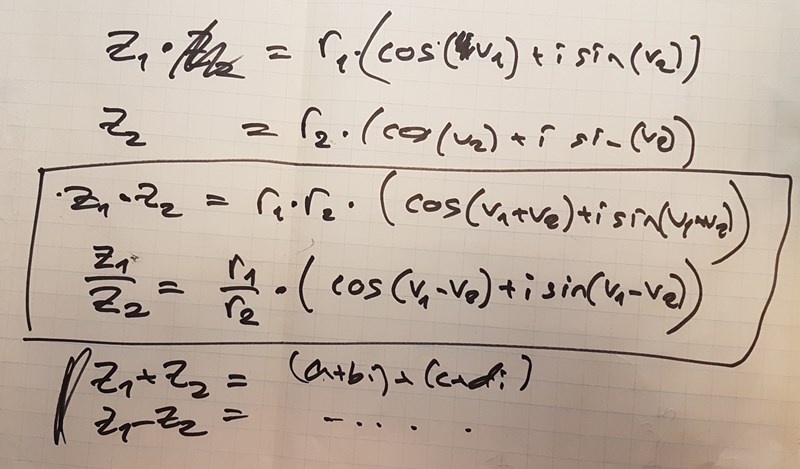 z₁ · = r₁·(cos(v₁) + i sin(v₂))
z₂ = r₂·(cos(v₂) + i sin(v₂))
·z₁·z₂ = r₁·r₂·(cos(v₁+v₂)+i sin(v₁+v₂))
z₁/z₂ = r₁/r₂ · (cos(v₁-v₂)+i sin(v₁-v₂))
z₁+z₂ = (a+bi)+(c+di)
z₁-z₂ = -....